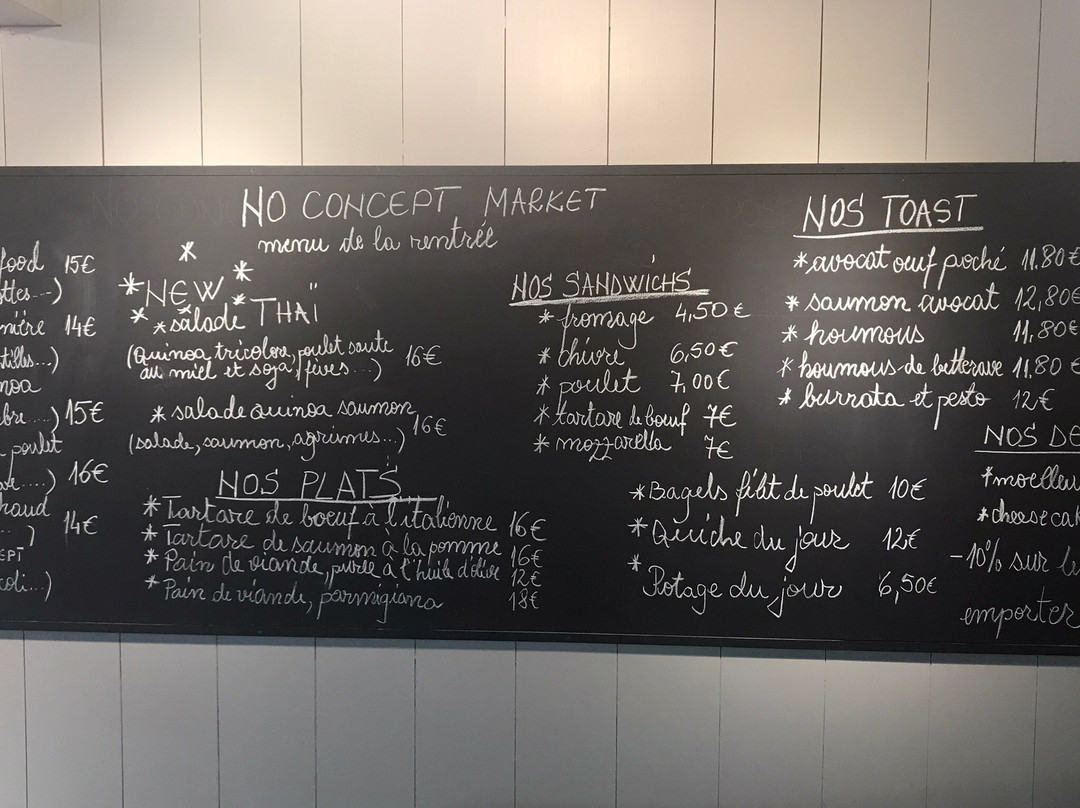 NO CONCEPT MARKET
menu de la rentrée
food 15€
ttes...)
nière 14€
tilles...)
noa
bre....) 15€
poulet
16€
haud
...) 14€
EPT
coli...)
* NEW *
* salade THAÏ
(Quinoa tricolore, poulet saute
au miel et soja, fèves...) 16€
* salade quinoa saumon
(salade, saumon, agrumes...) 16€
NOS PLATS
* Tartare de boeuf à l'italienne 16€
* Tartare de saumon à la pomme 16€
* Pain de viande, purée à l'huile d'olive 12€
* Pain de viande, parmigiana 18€
NOS SANDWICHS
* fromage 4,50€
* chèvre 6,50€
* poulet 7,00€
* tartare de boeuf 7€
* mozzarella 7€
* Bagels filet de poulet 10€
* Quiche du jour 12€
* Potage du jour 6,50€
NOS TOAST
* avocat oeuf poché 11.80€
* saumon avocat 12,80€
* houmous 11,80€
* houmous de betterave 11,80€
* burrata et pesto 12€
NOS DE
* moelleu
* cheesecak
-10% sur le
emporter